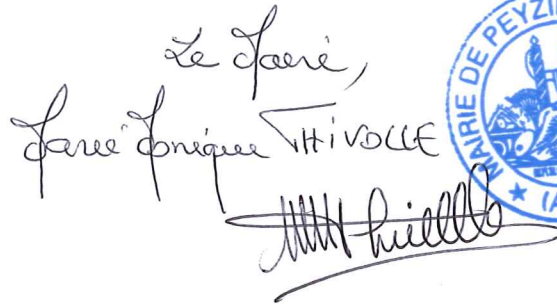 Le Maire,
Marie Monique THIVOLLE
MAIRIE DE PEYZI
★ (A